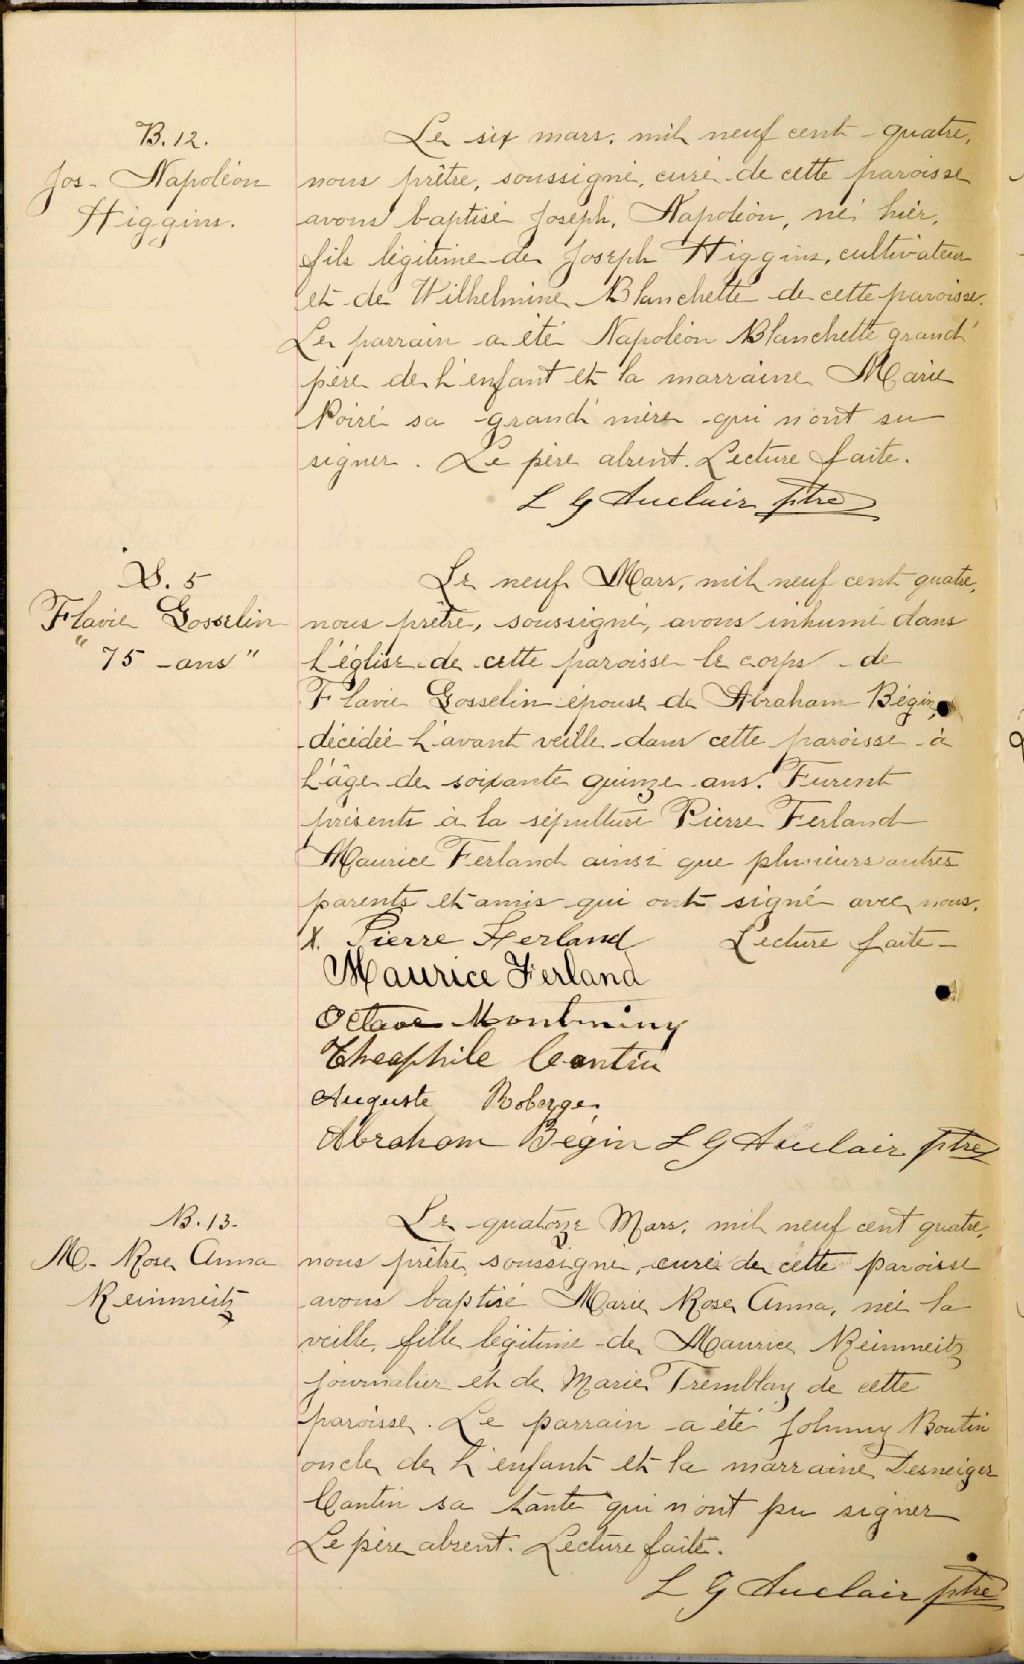 B. 12.
Jos- Napoléon
Higgins.
Le six mars, mil neuf cent quatre,
nous prêtre, soussigné, curé de cette paroisse
avons baptisé Joseph, Napoléon, né hier,
fils légitime de Joseph Higgins, cultivateur
et de Wilhelmine Blanchette de cette paroisse.
Le parrain a été Napoléon Blanchette grand'
père de l'enfant et la marraine Marie
Poiré sa grand'mère qui n'ont su
signer. Le père absent. Lecture faite.
L G Auclair ptre
S. 5
Flavie Gosselin
"75 ans"
Le neuf Mars, mil neuf cent quatre,
nous prêtre, soussigné, avons inhumé dans
l'église de cette paroisse le corps de
Flavie Gosselin épouse de Abraham Bégin,
décédée l'avant veille dans cette paroisse à
l'âge de soixante quinze ans. Furent
présents à la sépulture Pierre Ferland
Maurice Ferland ainsi que plusieurs autres
parents et amis qui ont signé avec nous.
X. Pierre Ferland Lecture faite
Maurice Ferland
Octave Montminy
Theophile Cantin
Auguste Roberge
Abraham Bégin L G Auclair ptre
B. 13.
M- Rose Anna
Reinmeitz
Le quatorze Mars, mil neuf cent quatre,
nous prêtre, soussigné, curé de cette paroisse
avons baptisé Marie Rose Anna, née la
veille, fille légitime de Maurice Reinmeitz
journalier et de Marie Tremblay de cette
paroisse. Le parrain a été Johnny Boutin
oncle de l'enfant et la marraine Desneiges
Cantin sa tante qui n'ont pu signer
Le père absent. Lecture faite.
L G Auclair ptre